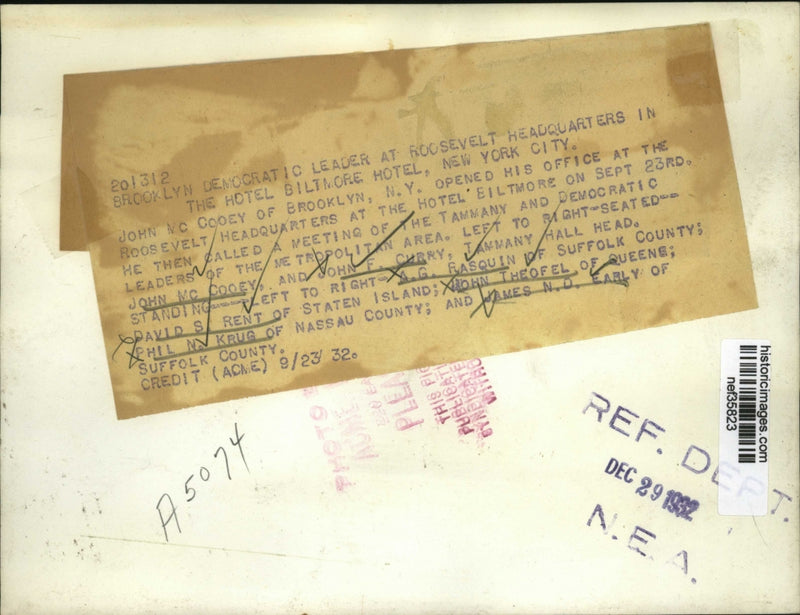 201312
BROOKLYN DEMOCRATIC LEADER AT ROOSEVELT HEADQUARTERS IN
THE HOTEL BILTMORE HOTEL, NEW YORK CITY.
JOHN MC COOEY OF BROOKLYN, N.Y. OPENED HIS OFFICE AT THE
ROOSEVELT HEADQUARTERS AT THE HOTEL BILTMORE ON SEPT 23RD.
HE THEN CALLED A MEETING OF THE TAMMANY AND DEMOCRATIC
LEADERS OF THE METROPOLITAN AREA. LEFT TO RIGHT-SEATED--
JOHN MC COOEY, AND JOHN F. CURRY, TAMMANY HALL HEAD.
STANDING---LEFT TO RIGHT- N.G. RASQUIN OF SUFFOLK COUNTY;
DAVID S. RENT OF STATEN ISLAND; JOHN THEOFEL OF QUEENS;
PHIL N. KRUG OF NASSAU COUNTY; AND JAMES N.D. EARLY OF
SUFFOLK COUNTY.
CREDIT (ACME) 9/23/32.
PHOTO
ACME
PLEA
THIS
A5074
REF. DEPT.
DEC 29 1932
N.E.A.
historicimages.com
nef35823